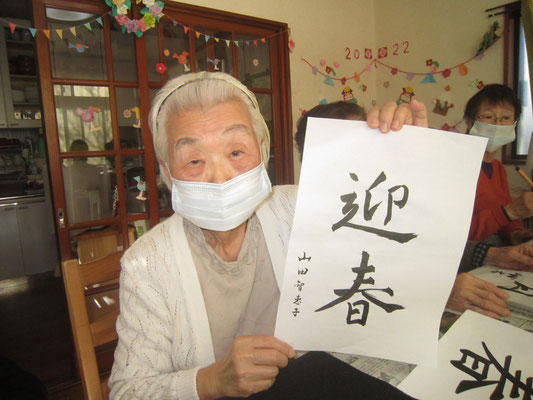 2022
迎春
山田智恵子
春